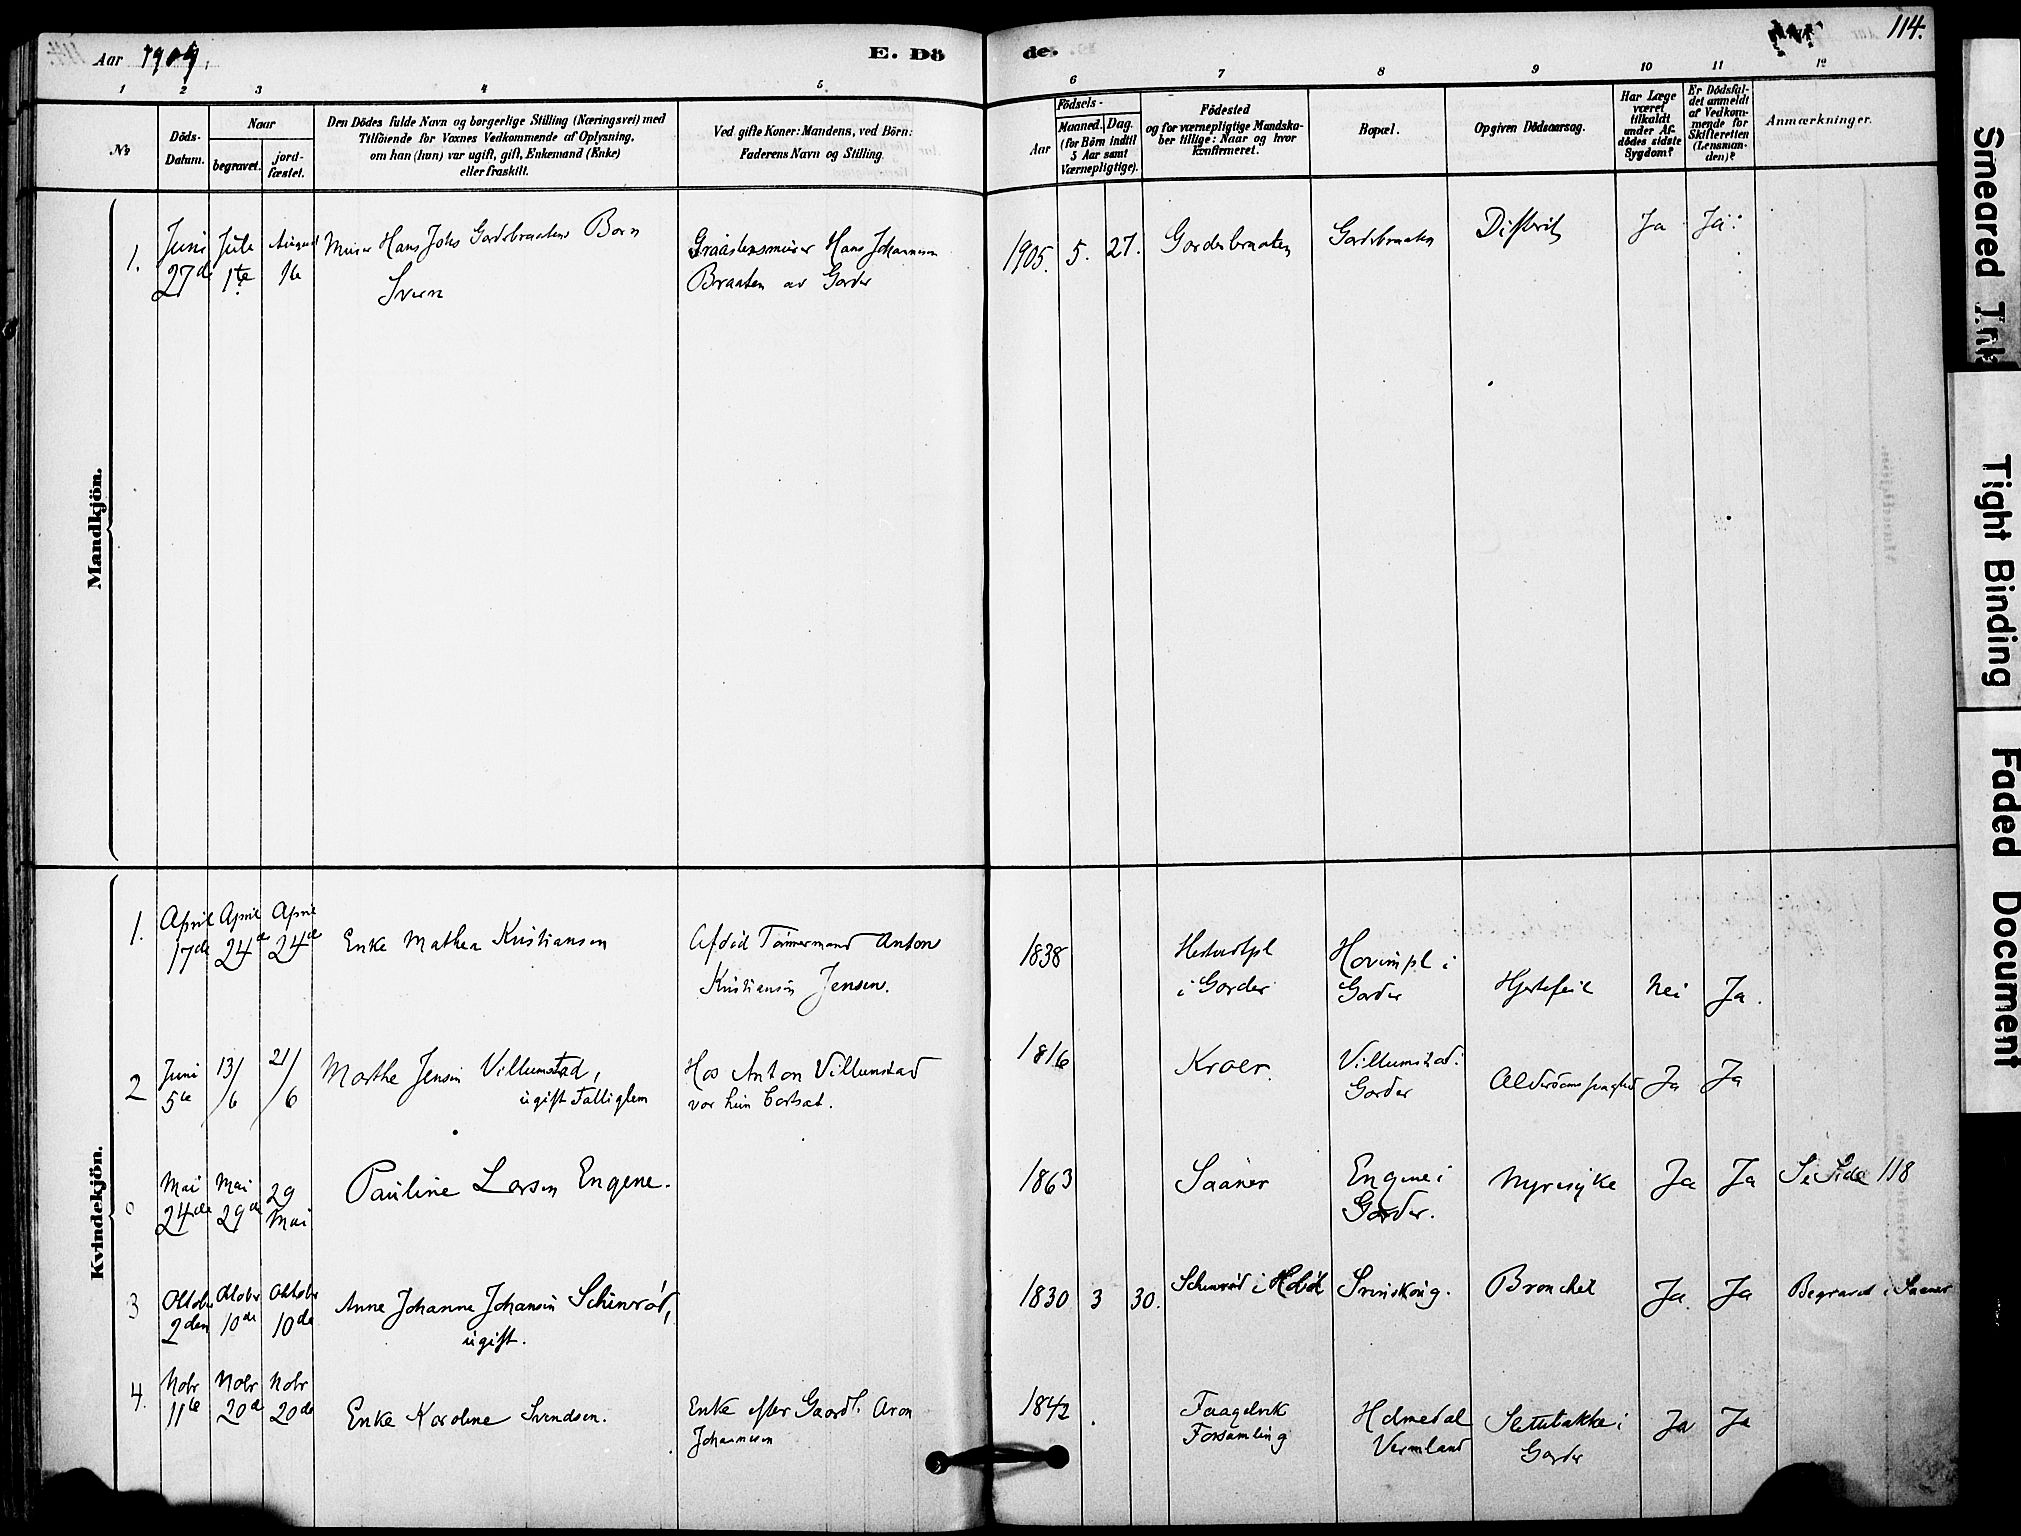 Aar 1909.
E. Dö
de.
114.
1 2 3 4 5.
6 7 8 9 10 11 12
No
Döds-
Datum.
Naar
begravet.
jord-
fæstet.
Den Dödes fulde Navn og borgerlige Stilling (Næringsvei) med
Tilföiende for Voxnes Vedkommende af Oplysning,
om han (hun) var ugift, gift, Enkemand (Enke)
eller fraskilt.
Ved gifte Koner: Mandens, ved Börn:
Faderens Navn og Stilling.
Födsels-
Aar
Maaned. Dag.
(for Börn indtil
5 Aar samt
Værnepligtige).
Födested
og for værnepligtige Mandska-
ber tillige: Naar og hvor
konfirmeret.
Bopæl.
Opgiven Dödsaarsag.
Har Læge
været
tilkaldt
under Af-
dödes sidste
Sygdom?
Er Dödsfal-
det anmeldt
af Vedkom-
mende for
Skifteretten
(Lensman-
den)?
Anmærkninger.
Mandkjön.
1.
Juni
27d
Juli
1te
August
1te
Murer Hans Johs Gardsbraatens Barn
Svern
Graastensmurer Hans Johannesen
Braaten av Garder
1905. 5. 27.
Garderbraaten
Gardsbraaten
Difterit
Ja
Ja
Kvindekjön.
1.
April
17de
April
24de
April
24de
Enke Mathea Kristiansen
Afdöd Tömmermand Anton
Kristiansen Jensen.
1838
i Garder
Hovinpl i
Garder
Hjertefeil
Nei
Ja.
2
Juni
5te
13/6
21/6
Marthe Jensen Villumstad,
ugift Fattiglem
Hos Anton Villumstad
var hun bortsat.
1816
Kraer.
Villumstad i
Garder
Ja
Ja
0
Mai
24de
Mai
29de
29
Mai
Pauline Larsen Engene.
1863
Saaner
Engene i
Garder.
Nyresyke
Ja
Ja
Se Side 118
3
Oktober
2den
Oktober
10de
Oktober
10de
Anne Johanne Johansen Schinröd,
ugift.
1830 3 30.
Schinröd i Hobøl
Svinskoug.
Bronchet
Ja.
Ja
Begravet i Saaner
4.
Nobr
11te
Nobr
20de
Nobr
20de
Enke Karoline Svendsen.
Enke efter Gaardb. Aron
Johannesen
1842
Faagelvik
Forsamling
Holmedal
Vermland
Slettebakke i
Garder
Ja
Ja
Smeared Ink
Tight Binding
Faded Document